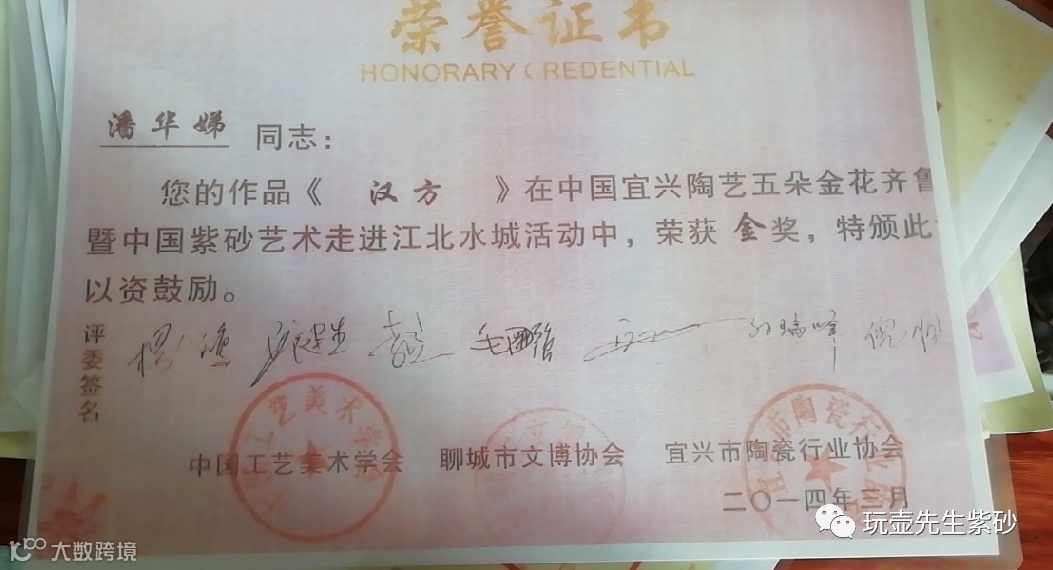 荣誉证书
HONORARY CREDENTIAL
潘华娣 同志：
您的作品《 汉方 》在中国宜兴陶艺五朵金花齐鲁
暨中国紫砂艺术走进江北水城活动中，荣获 金奖，特颁此
以资鼓励。
评委签名
毛国强
中国工艺美术学会 聊城市文博协会 宜兴市陶瓷行业协会
二〇一四年三月
玩壶先生紫砂
大数跨境